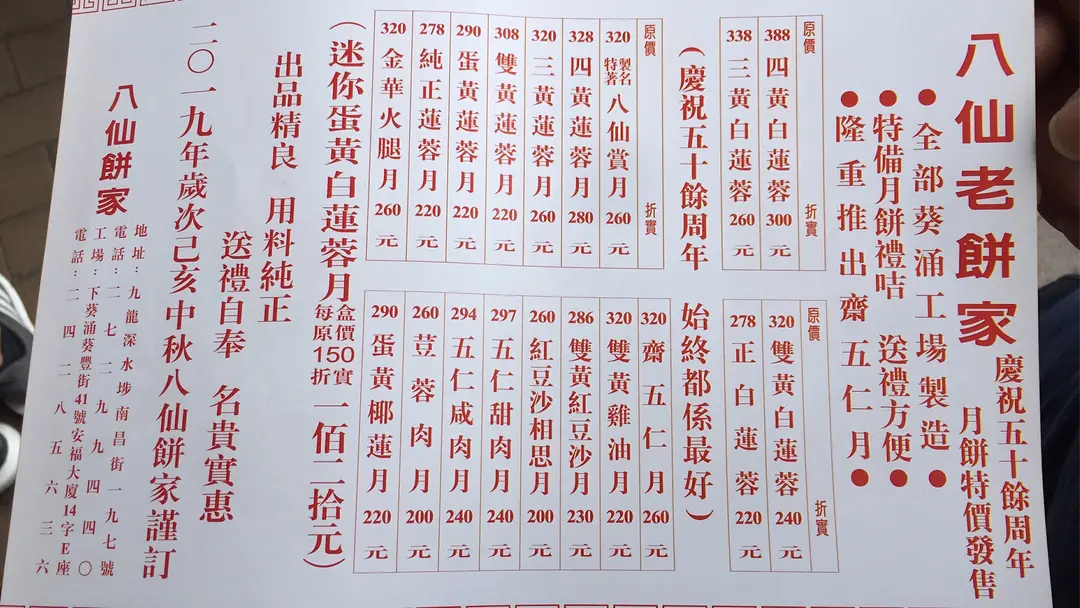 八仙老餅家
慶祝五十餘周年
月餅特價發售
●全部葵涌工場製造●
●特備月餅禮咭 送禮方便●
●隆重推出齋五仁月●
原價 折實
388 四黃白蓮蓉 300 元
338 三黃白蓮蓉 260 元
原價 折實
320 雙黃白蓮蓉 240 元
278 正白蓮蓉 220 元
(慶祝五十餘周年 始終都係最好)
原價 折實
320 特著製名八仙賞月 260 元
328 四黃蓮蓉月 280 元
320 三黃蓮蓉月 260 元
308 雙黃蓮蓉月 220 元
290 蛋黃蓮蓉月 220 元
278 純正蓮蓉月 220 元
320 金華火腿月 260 元
320 齋五仁月 260 元
320 雙黃雞油月 220 元
286 雙黃紅豆沙 230 元
260 紅豆沙相思月 200 元
297 五仁甜肉月 240 元
294 五仁咸肉月 240 元
260 荳蓉肉月 200 元
290 蛋黃椰蓮月 220 元
(迷你蛋黃白蓮蓉月每盒原價150折實一佰二拾元)
出品精良 用料純正
送禮自奉 名貴實惠
二〇一九年歲次己亥中秋八仙餅家謹訂
八仙餅家
地址:九龍深水埗南昌街一九七號
電話:二七二九九四四〇
工場:下葵涌葵豐街41號安福大廈14字E座
電話:二四二八五六三六